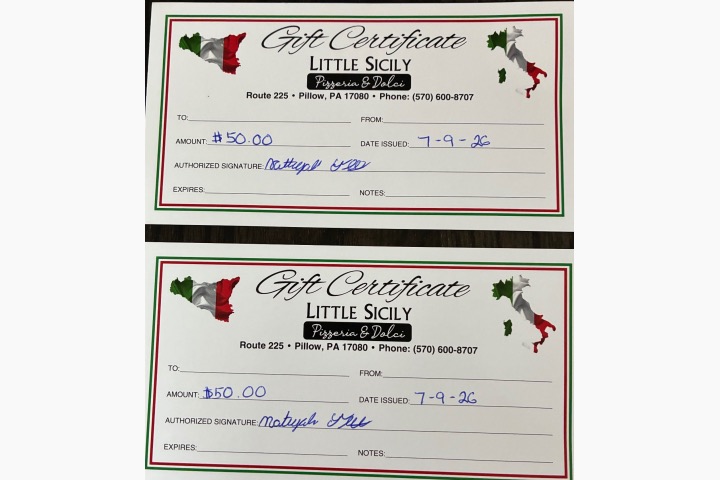 Gift Certificate
LITTLE SICILY
Pizzeria & Dolci
Route 225 • Pillow, PA 17080 • Phone: (570) 600-8707
TO: FROM:
AMOUNT: $50.00 DATE ISSUED: 7-9-26
AUTHORIZED SIGNATURE:
EXPIRES: NOTES:
Gift Certificate
LITTLE SICILY
Pizzeria & Dolci
Route 225 • Pillow, PA 17080 • Phone: (570) 600-8707
TO: FROM:
AMOUNT: $50.00 DATE ISSUED: 7-9-26
AUTHORIZED SIGNATURE:
EXPIRES: NOTES: